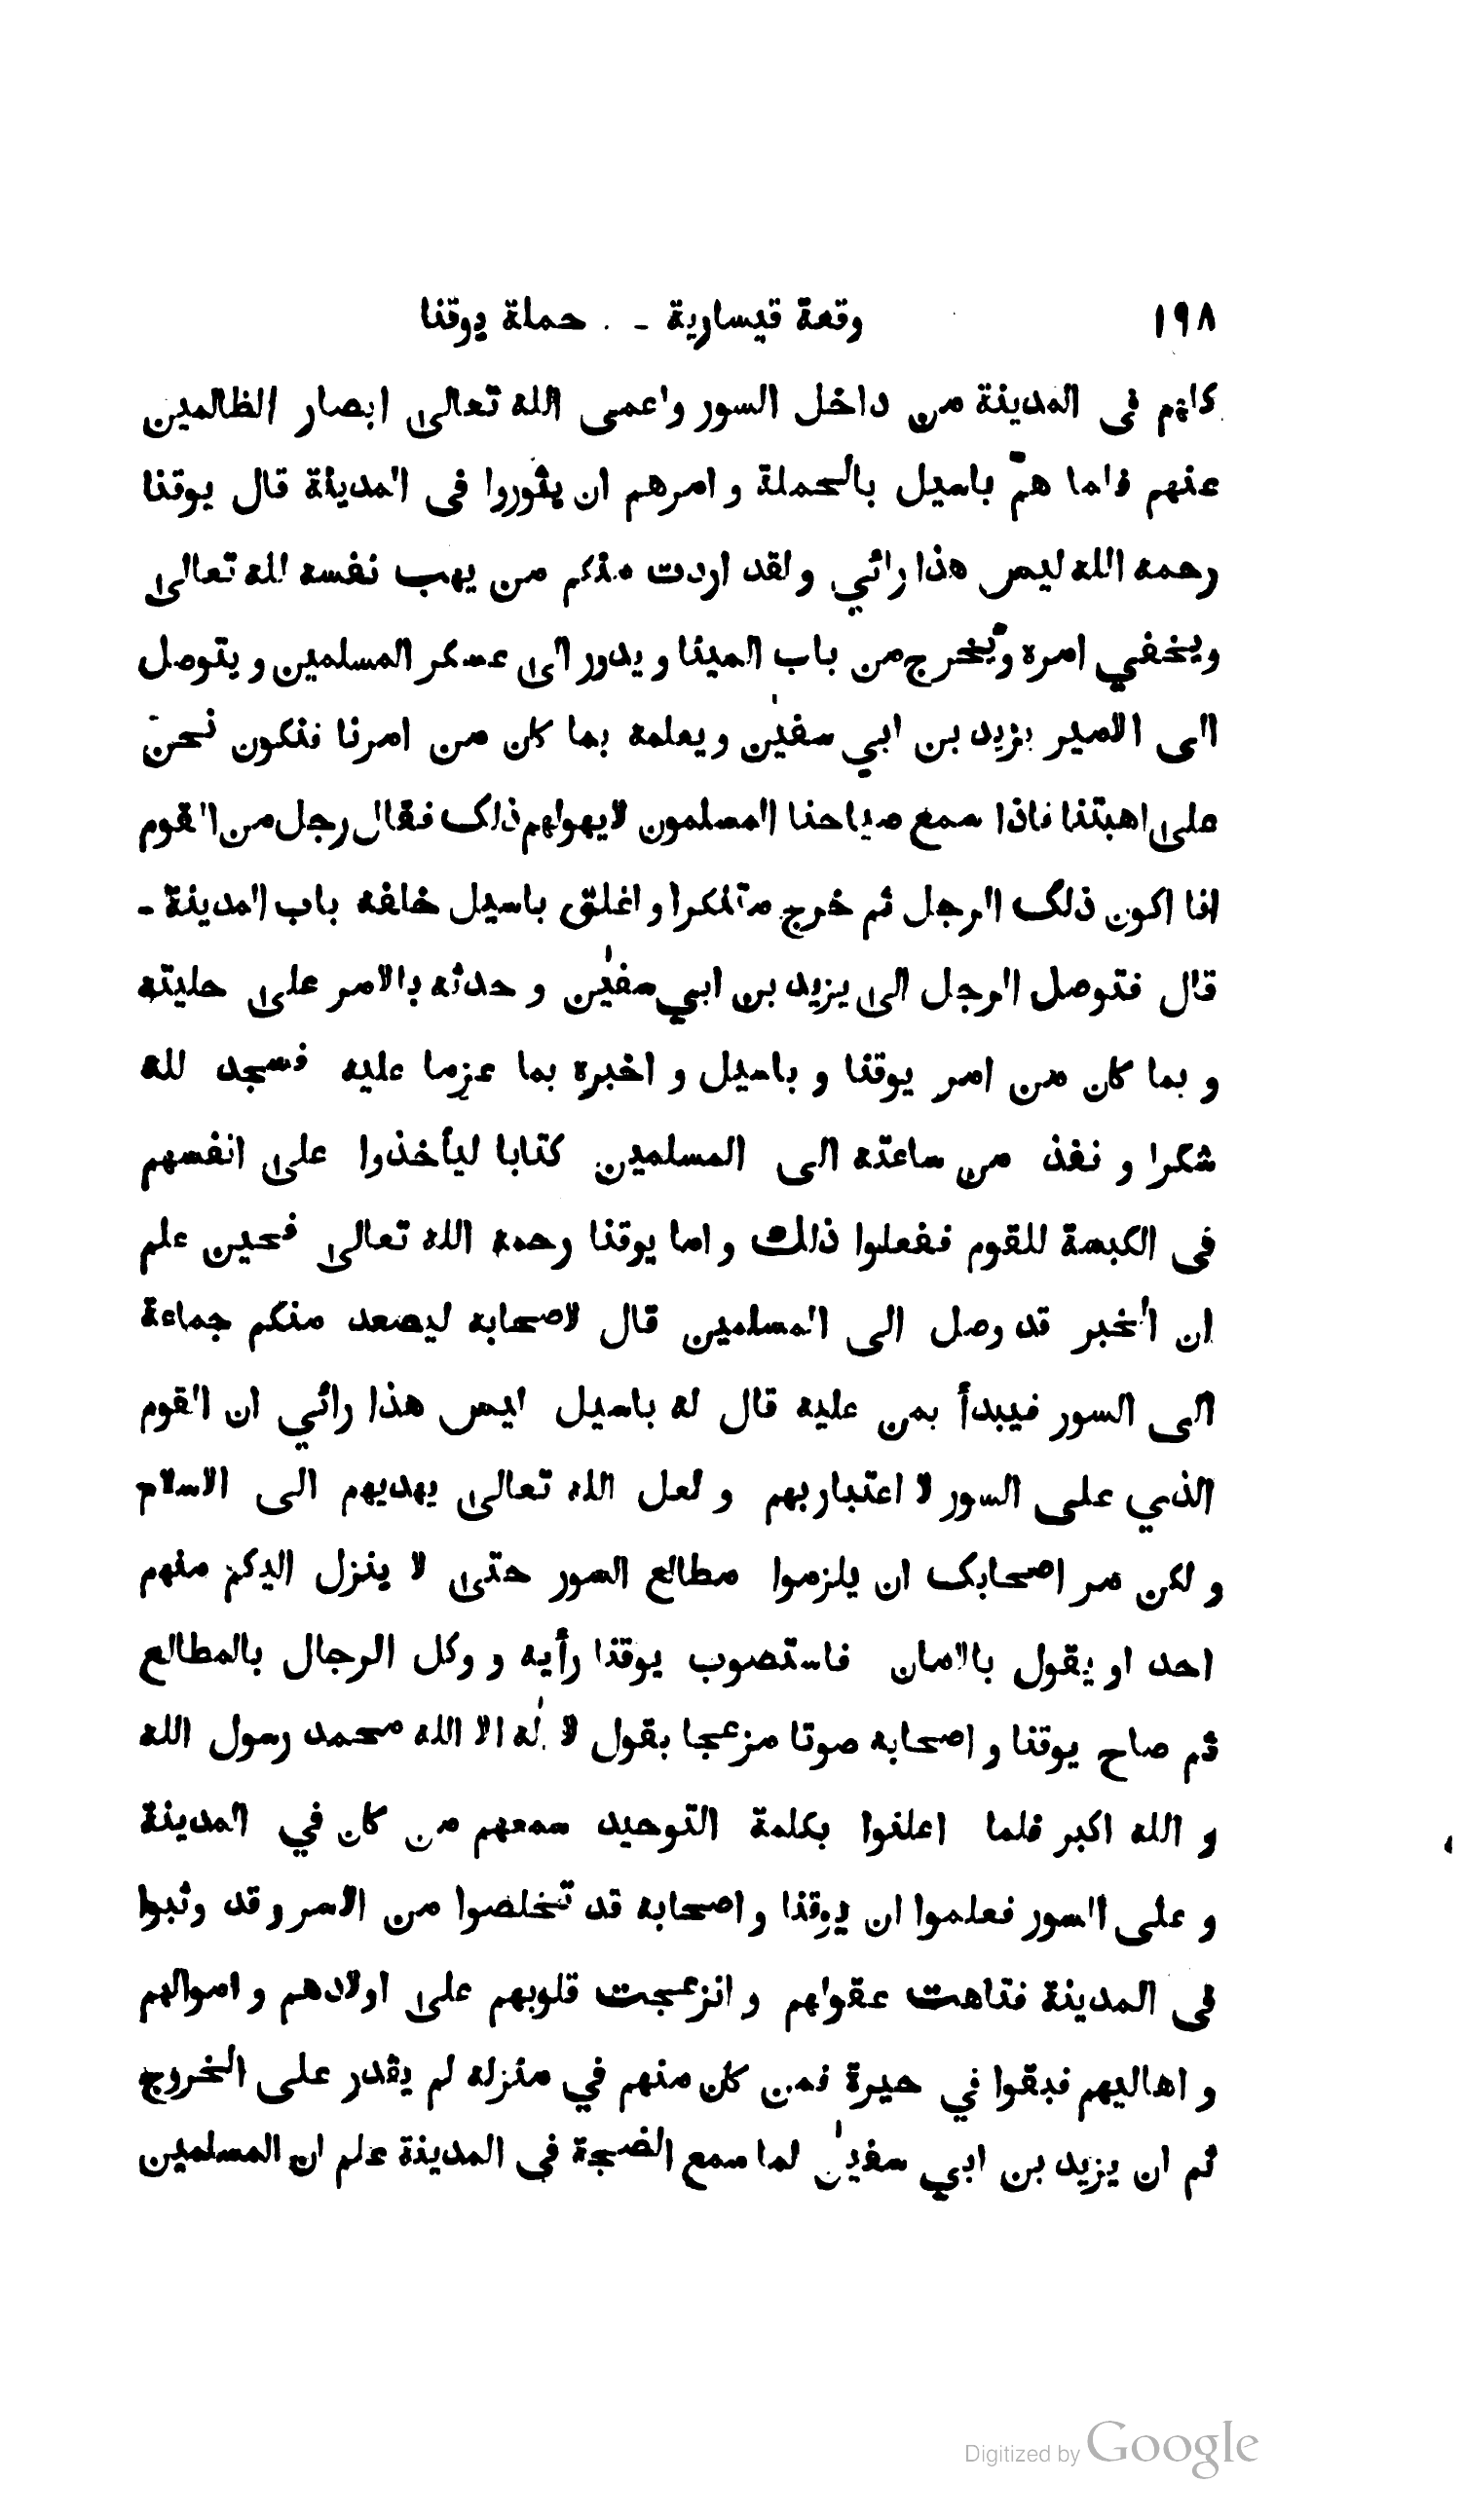 ١٩٨ وقعة قيسارية - حملة يوقنا
كلهم فى المدينة من داخل السور واعمى الله تعالى ابصار الظالمين
عنهم فلما همّ باسيل بالحملة و امرهم ان يثوروا فى المدينة قال يوقنا
رحمه الله ليس هذا رائي ولقد اردت منكم من يهب نفسه لله تعالى
ويخفي امره ويخرج من باب المينا و يدور الى عسكر المسلمين و يتوصل
الى الامير يزيد بن ابي سفيٰن ويعلمه بما كان من امرنا فنكون نحن
على اهبتنا فاذا سمع صياحنا المسلمون لايهولهم ذلك فقال رجل من القوم
انا اكون ذلك الرجل ثم خرج متنكرا و اغلق باسيل خلفه باب المدينة -
قال فتوصل الرجل الى يزيد بن ابي سفيٰن و حدثه بالامر على حليته
و بما كان من امر يوقنا و باسيل و اخبره بما عزما عليه فسجد لله
شكرا و نفذ من ساعته الى المسلمين كتابا ليأخذوا على انفسهم
فى الكبسة للقوم ففعلوا ذلك و اما يوقنا رحمه الله تعالى فحين علم
ان الخبر قد وصل الى المسلمين قال لاصحابه ليصعد منكم جماعة
الى السور فيبدأ بمن عليه قال له باسيل ليس هذا رائي ان القوم
الذي على السور لا اعتبار بهم و لعل الله تعالى يهديهم الى الاسلام
و لكن مر اصحابك ان يلزموا مطالع السور حتى لا ينزل اليكم منهم
احد او يقول بالامان فاستصوب يوقنا رأيه و وكل الرجال بالمطالع
ثم صاح يوقنا و اصحابه صوتا مزعجا بقول لا اله الا الله محمد رسول الله
و الله اكبر فلما اعلنوا بكلمة التوحيد سمعهم من كان في المدينة
و على السور فعلموا ان يوقنا و اصحابه قد تخلصوا من الاسر و قد وثبوا
فى المدينة فتاهت عقولهم و انزعجت قلوبهم على اولادهم و اموالهم
و اهاليهم فبقوا في حيرة فمن كان منهم في منزله لم يقدر على الخروج
ثم ان يزيد بن ابي سفيٰن لما سمع الضجة في المدينة علم ان المسلمين
Digitized by Google